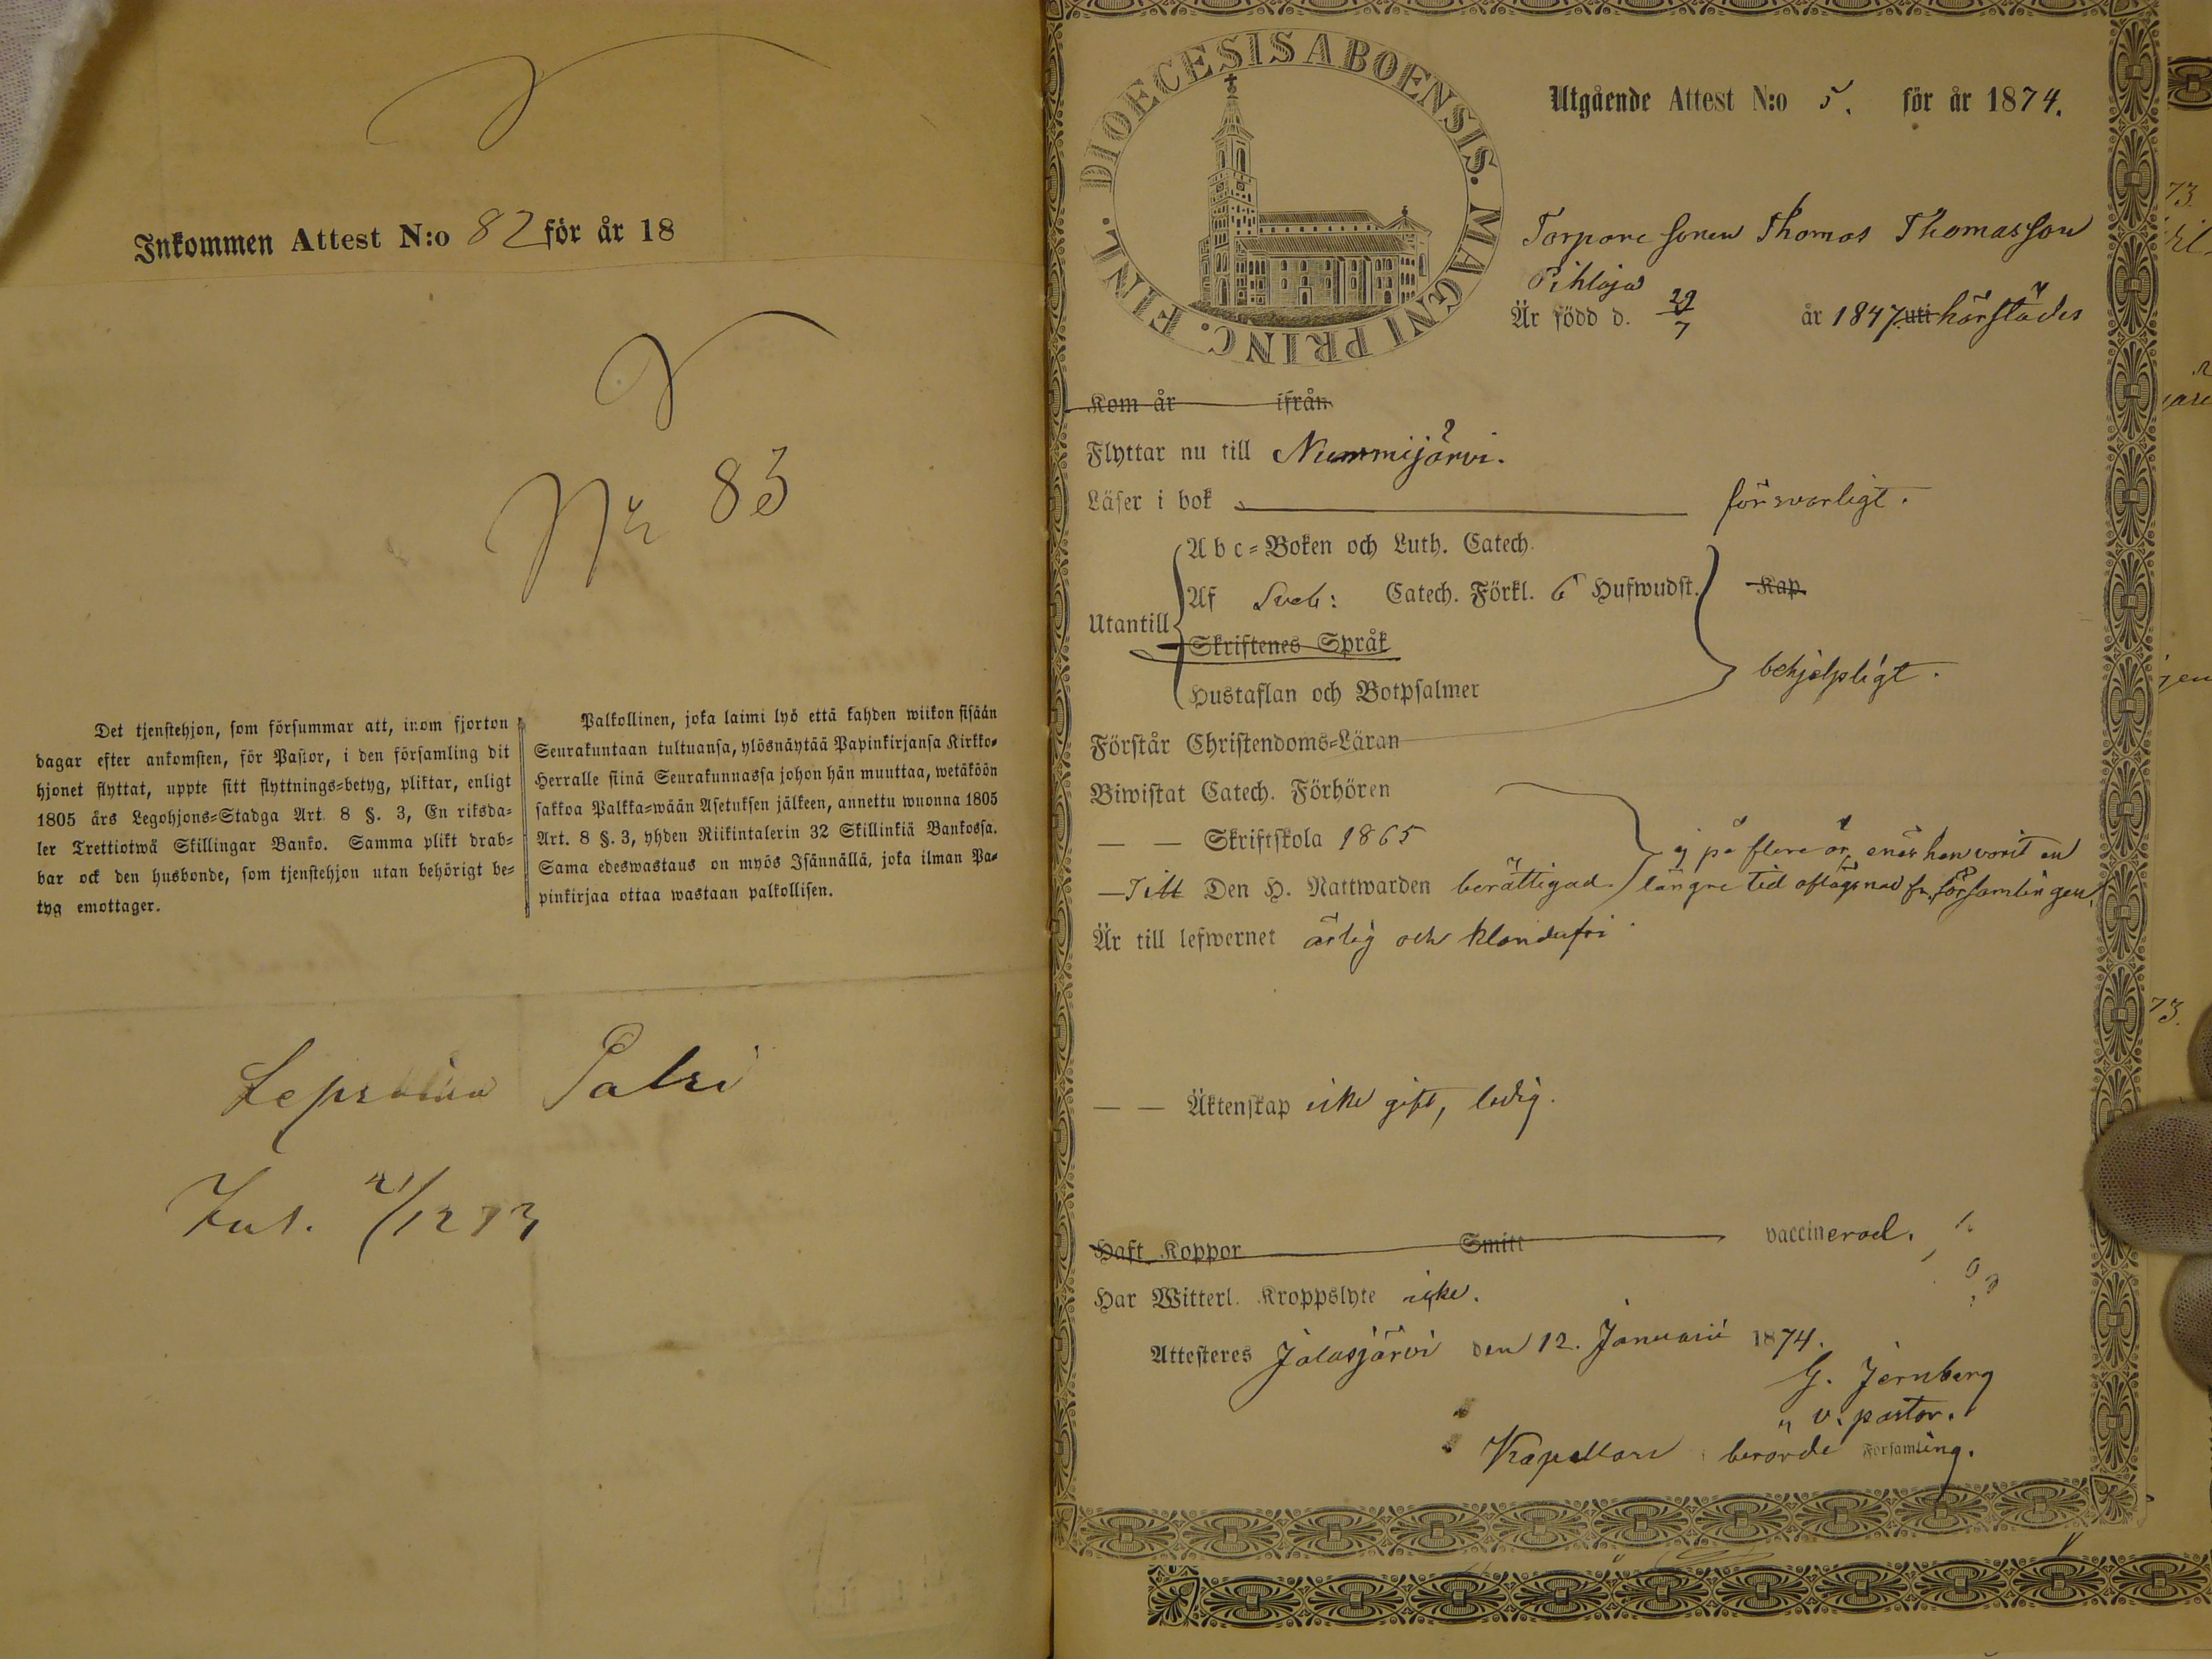 Inkommen Attest N:o 82 för år 18
Nr 83
Det tjenstehjon, som försummar att, inom fjorton
dagar efter ankomsten, för Pastor, i den församling dit
hjonet flyttat, uppte sitt flyttnings-betyg, pliktar, enligt
1805 års Legohjons-Stadga Art. 8 §. 3, En riksda-
ler Trettiotwå Skillingar Banko. Samma plikt drab-
bar ock den husbonde, som tjenstehjon utan behörigt be-
tyg emottager.
Palkollinen, joka laimi lyö että kahden wiikon sisään
Seurakuntaan tultuansa, ylösnäyttää Papinkirjansa Kirkko-
Herralle siinä Seurakunnassa johon hän muuttaa, wetäköön
sakkoa Palkka-wään Asetuksen jälkeen, annettu wuonna 1805
Art. 8 §. 3, yhden Riikintalerin 32 Skillinkiä Bankossa.
Sama edeswastaus on myös Isännällä, joka ilman Pa-
pinkirjaa ottaa wastaan palkollisen.
DIOECESIS ABOENSIS. MAGNI PRINC. FINL.
Utgående Attest N:o 5. för år 1874.
Torpare sonen Thomas Thomasson
Pihlaja
Är född d. 29/7 år 1847 uti härstädes
Kom år ifrån
Flyttar nu till Nummijärvi.
Läser i bok försvarligt.
Abc-Boken och Luth. Catech.
Af Sveb: Catech. Förkl. 6 Hufwudst. Kap
Utantill
Skriftenes Språk
Hustaflan och Botpsalmer behjelpligt.
Förstår Christendoms-Läran
Biwistat Catech. Förhören
— — Skriftskola 1865 ej på flere år, enär han varit en
— Till Den H. Nattwarden berättigad längre tid aflägsnad fr. församlingen.
Är till lefwernet ärlig och klanderfri
— — Äktenskap icke gift, ledig.
Haft Koppor Smitt vaccinerad.
Har Witterl. Kroppslyte icke.
Attesteres Jalasjärvi den 12. Januarii 1874.
G. Jernberg
v. pastor.
Kapellan berörde Församling.